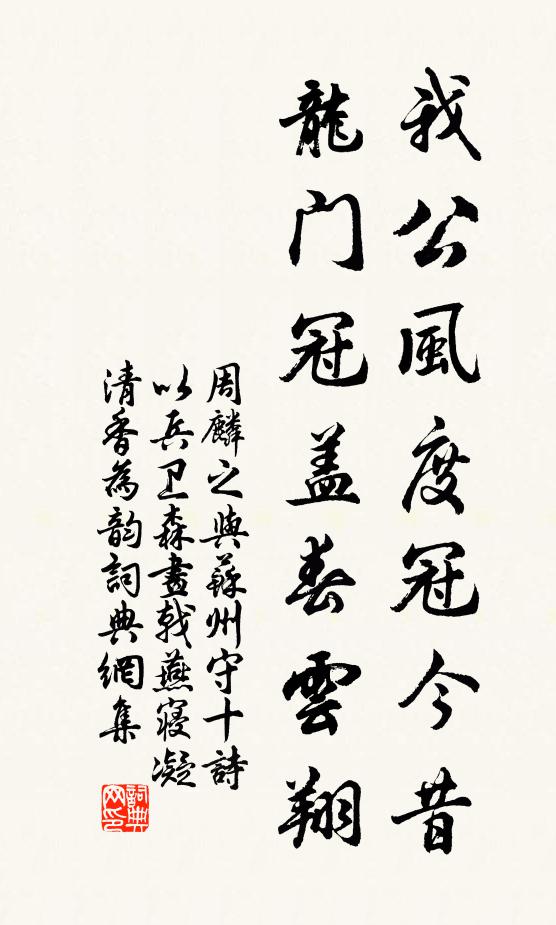 我公風度冠今昔
龍门冠盖春雲翔
周麟之與蘇州守十詩
以兵卫森畫戟燕寝凝
清香為韵詞典網集
詞典
网印